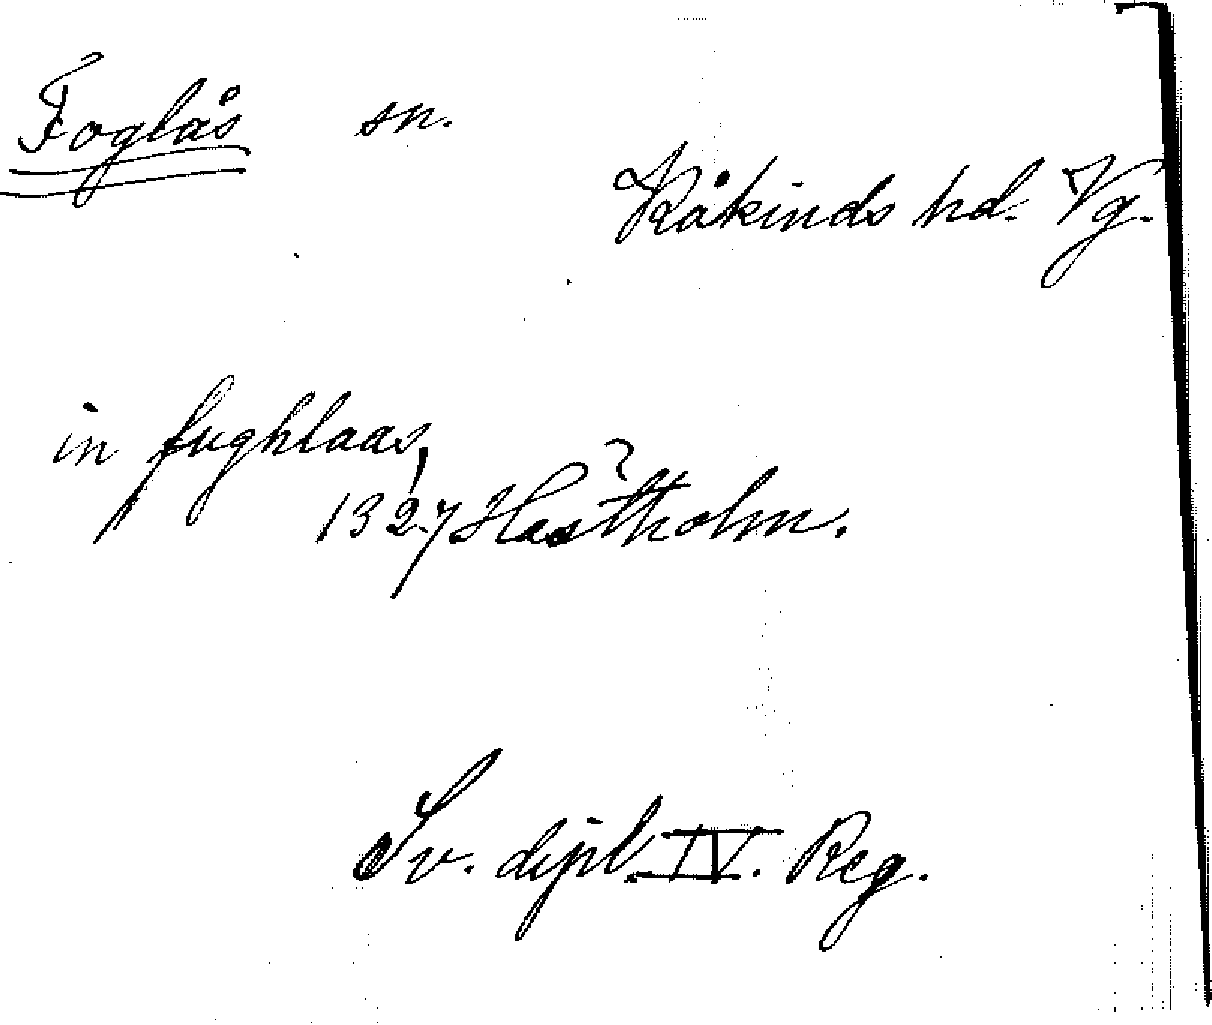 Foglås sn.
Kåkinds hd. Vg.
in fughlaas,
1327 Hästholm.
Sv. dipl. IV. Reg.